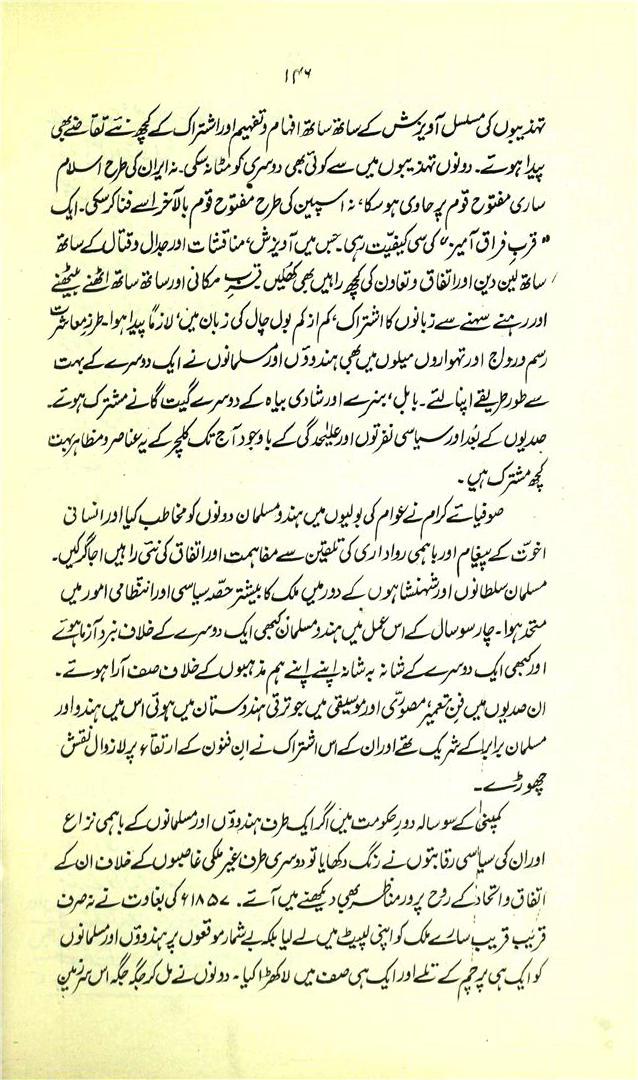 ۱۴۶
تہذیبوں کی مسلسل آویزش کے ساتھ ساتھ افہام و تفہیم اور اشتراک کے کچھ نئے تقاضے بھی
پیدا ہوتے۔ دونوں تہذیبوں میں سے کوئی بھی دوسری کو مٹا نہ سکی۔ نہ ایران کی طرح اسلام
ساری مفتوح قوم پر حاوی ہو سکا، نہ اسپین کی طرح مفتوح قوم بالآخر اسے فنا کر سکی۔ ایک
"قربِ فراق آمیز" کی سی کیفیت رہی۔ جس میں آویزش، مناقشات اور جدال و قتال کے ساتھ
ساتھ لین دین اور اتفاق و تعاون کی کچھ راہیں بھی کھلیں قربِ مکانی اور ساتھ ساتھ اٹھنے بیٹھنے
اور رہنے سہنے سے زبانوں کا اشتراک، کم از کم بول چال کی زبان میں، لازماً پیدا ہوا۔ طرزِ معاشرت
رسم و رواج اور تہواروں میلوں میں بھی ہندوؤں اور مسلمانوں نے ایک دوسرے کے بہت
سے طور طریقے اپنا لئے۔ بابل، بنرے اور شادی بیاہ کے دوسرے گیت گانے مشترک ہوتے۔
صدیوں کے بعد اور سیاسی نفرتوں اور علیٰحدگی کے باوجود آج تک کلچر کے یہ عناصر و مظاہر بہت
کچھ مشترک ہیں۔
صوفیائے کرام نے عوام کی بولیوں میں ہندو مسلمان دونوں کو مخاطب کیا اور انسانی
اخوّت کے پیغام اور باہمی رواداری کی تلقین سے مفاہمت اور اتفاق کی نئی راہیں اجاگر کیں۔
مسلمان سلطانوں اور شہنشاہوں کے دور میں ملک کا بیشتر حصّہ سیاسی اور انتظامی امور میں
متحد ہوا۔ چار سو سال کے اس عمل میں ہندو مسلمان کبھی ایک دوسرے کے خلاف نبرد آزما ہوئے
اور کبھی ایک دوسرے کے شانہ بہ شانہ اپنے اپنے ہم مذہبوں کے خلاف صف آرا ہوتے۔
ان صدیوں میں فنِ تعمیر، مصوّری اور موسیقی میں جو ترقی ہندوستان میں ہوئی اس میں ہندو اور
مسلمان برابر کے شریک تھے اور ان کے اس اشتراک نے ان فنون کے ارتقاء پر لازوال نقش
چھوڑے۔
کمپنی کے سو سالہ دورِ حکومت میں اگر ایک طرف ہندوؤں اور مسلمانوں کے باہمی نزاع
اور ان کی سیاسی رقابتوں نے رنگ دکھایا تو دوسری طرف غیر ملکی غاصبوں کے خلاف ان کے
اتفاق و اتحاد کے روح پرور مناظر بھی دیکھنے میں آتے۔ ۱۸۵۷ء کی بغاوت نے نہ صرف
قریب قریب سارے ملک کو اپنی لپیٹ میں لے لیا بلکہ بے شمار موقعوں پر ہندوؤں اور مسلمانوں
کو ایک ہی پرچم کے تلے اور ایک ہی صف میں لا کھڑا کیا۔ دونوں نے مل کر جگہ جگہ اس سرزمین